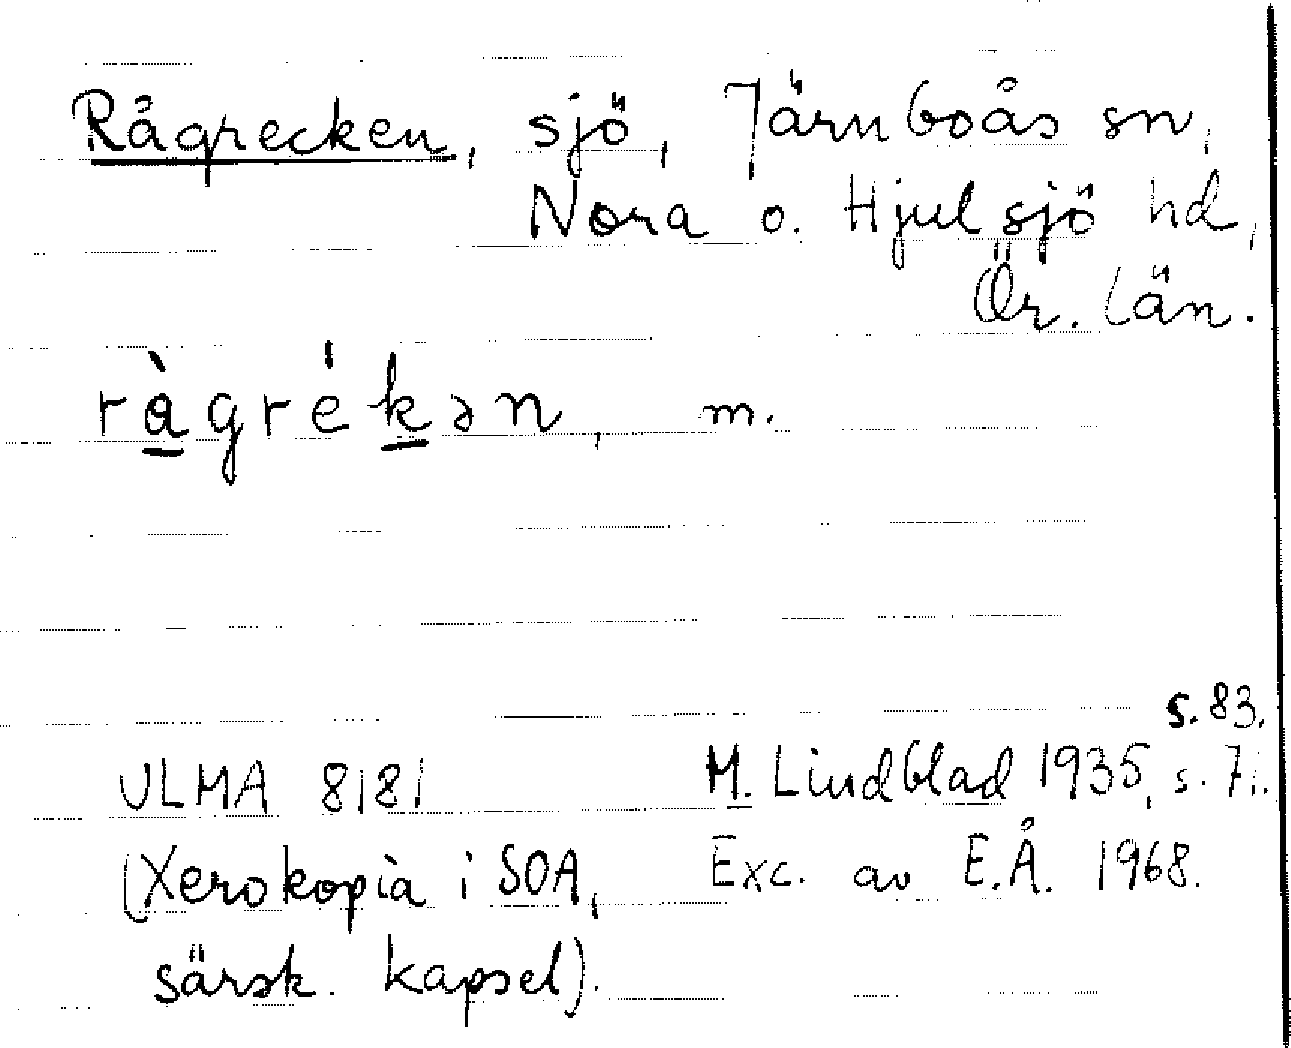 Rågrecken, sjö, Järnboås sn,
Nora o. Hjulsjö hd,
Ör. län.
ràgrékən, m.
s. 83.
ULMA 8181 M. Lindblad 1935, s. 71.
(Xerokopia i SOA, Exc. av E.Å. 1968.
särsk. kapsel).